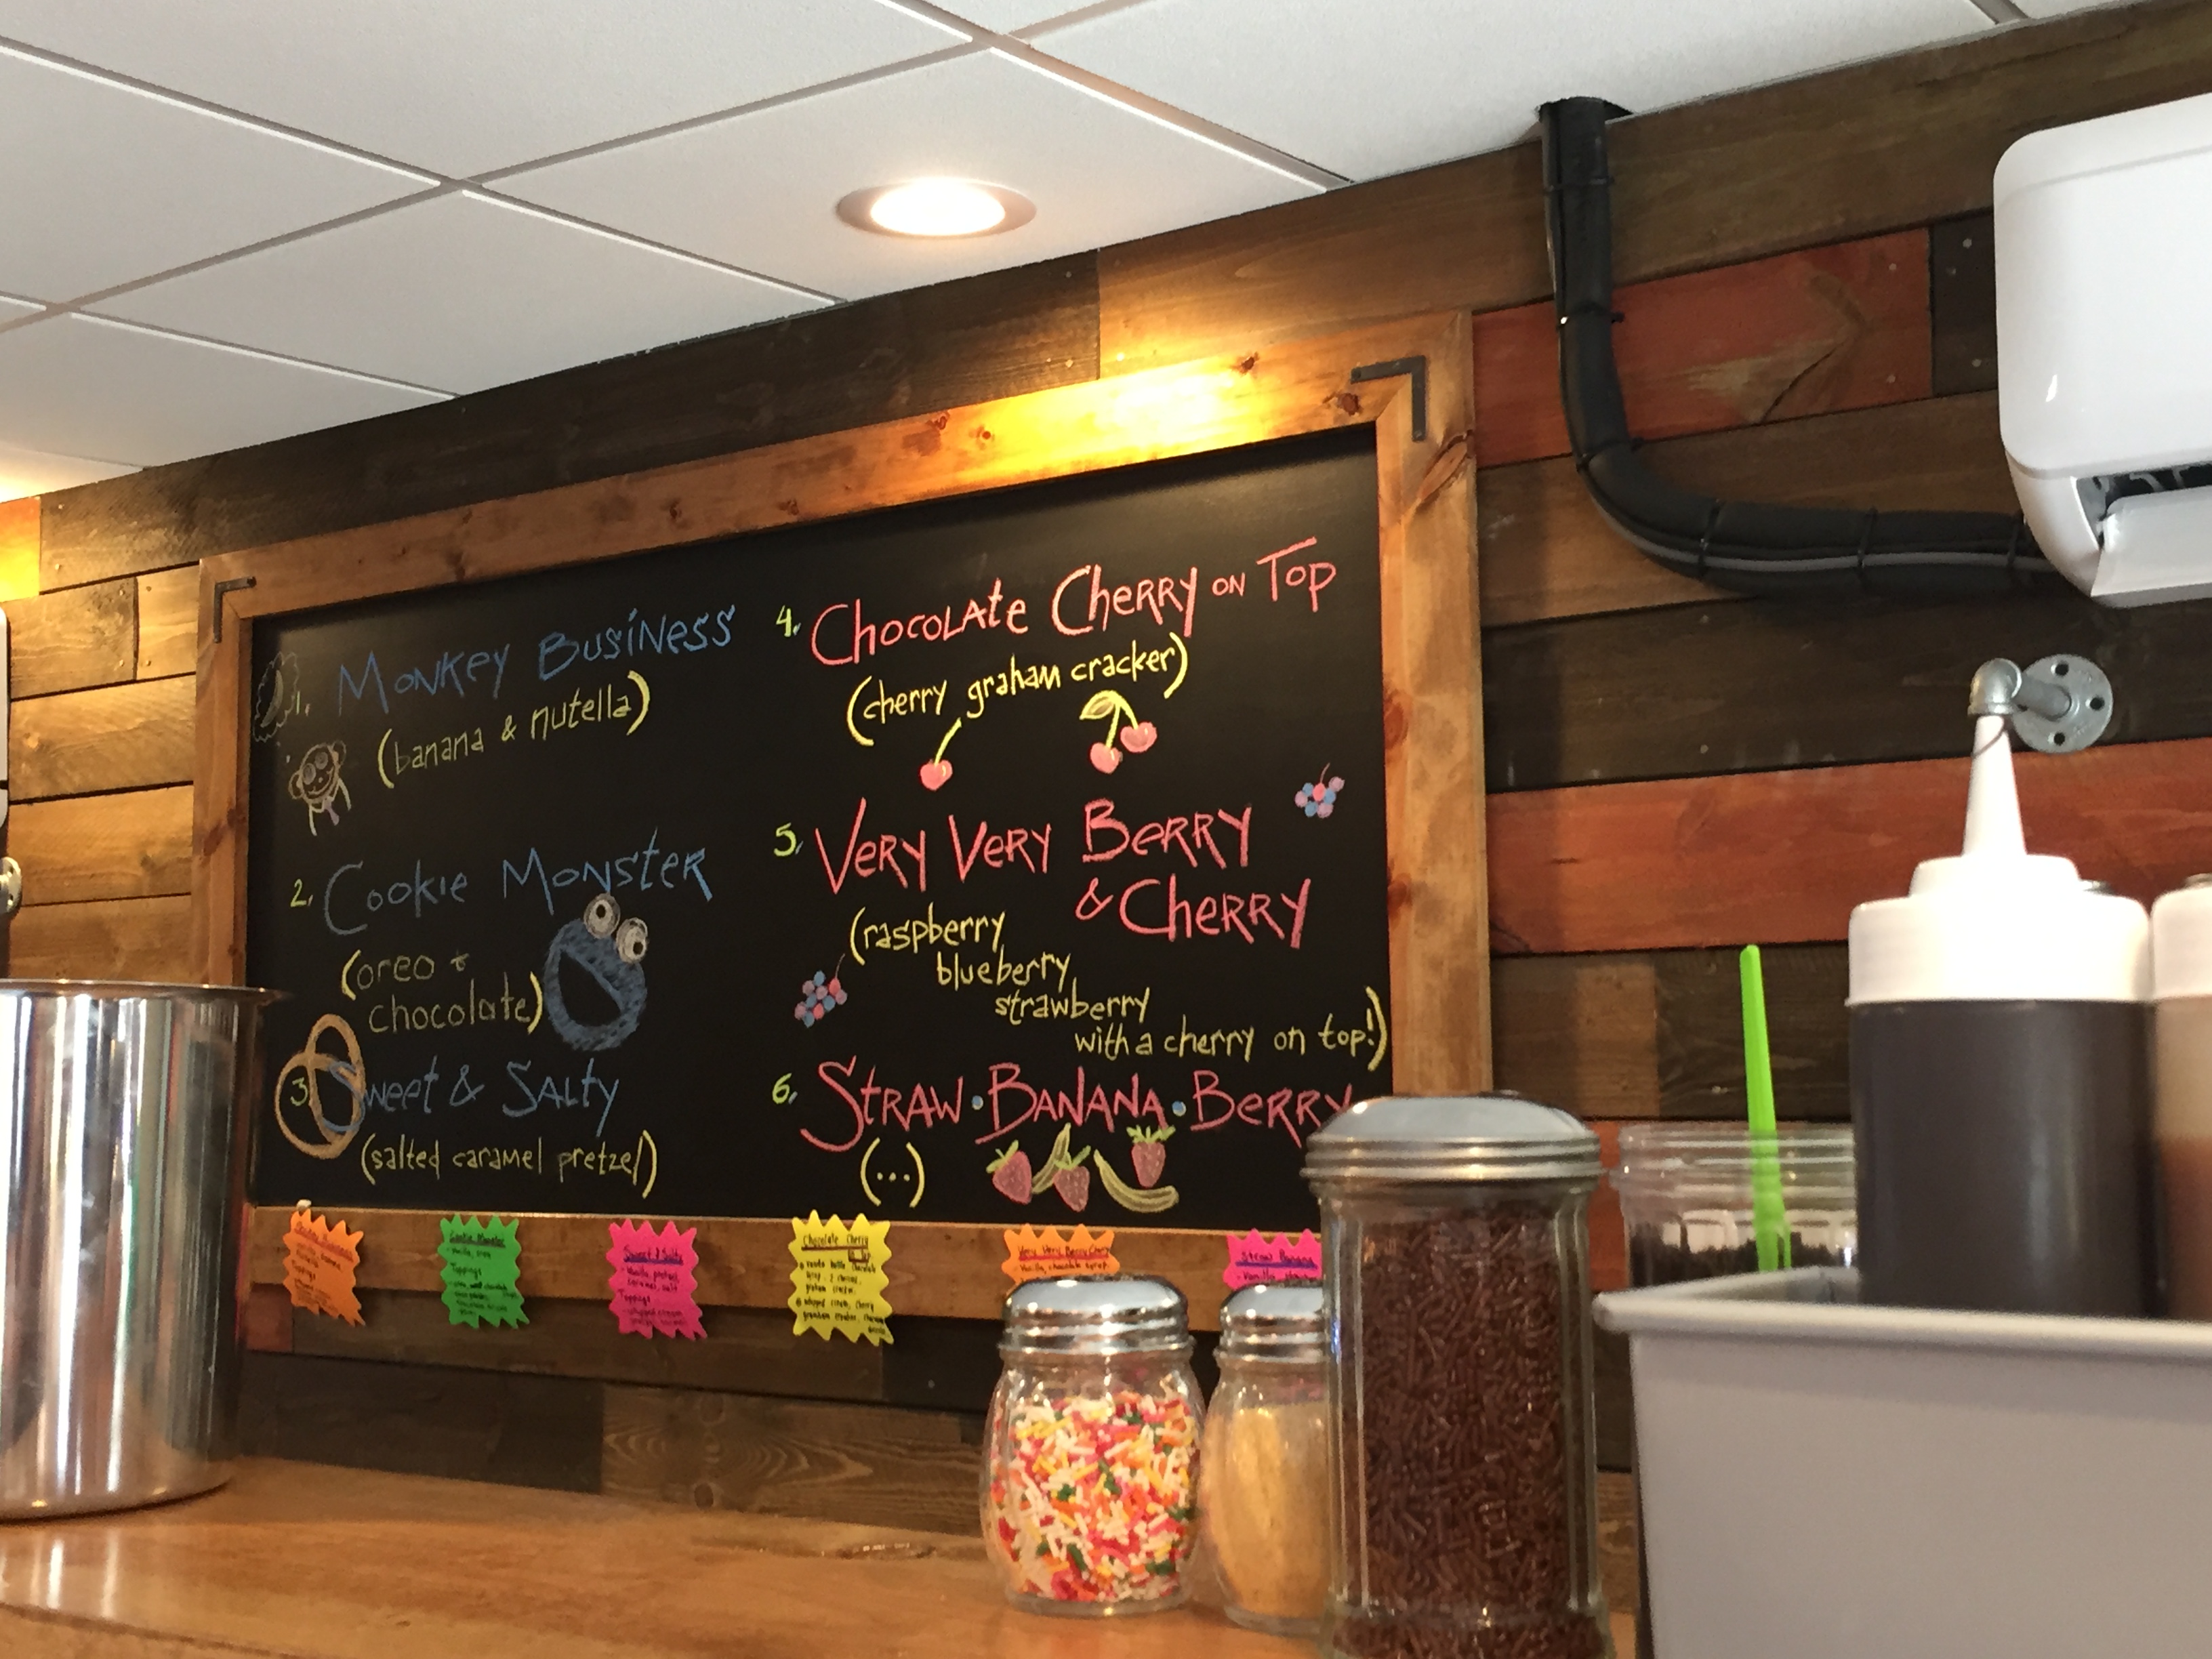 1. Monkey Business
(banana & nutella)
2. Cookie Monster
(oreo +
chocolate)
3. Sweet & Salty
(salted caramel pretzel)
4. Chocolate Cherry on Top
(cherry graham cracker)
5. Very Very Berry
& Cherry
(raspberry
blueberry
strawberry
with a cherry on top!)
6. Straw•Banana•Berry
(...)
Cookie Monster
Toppings
Sweet & Salty
Toppings
Chocolate Cherry
Very Very Berry Cherry
- Vanilla, chocolate syrup,
Straw Banana
- Vanilla,